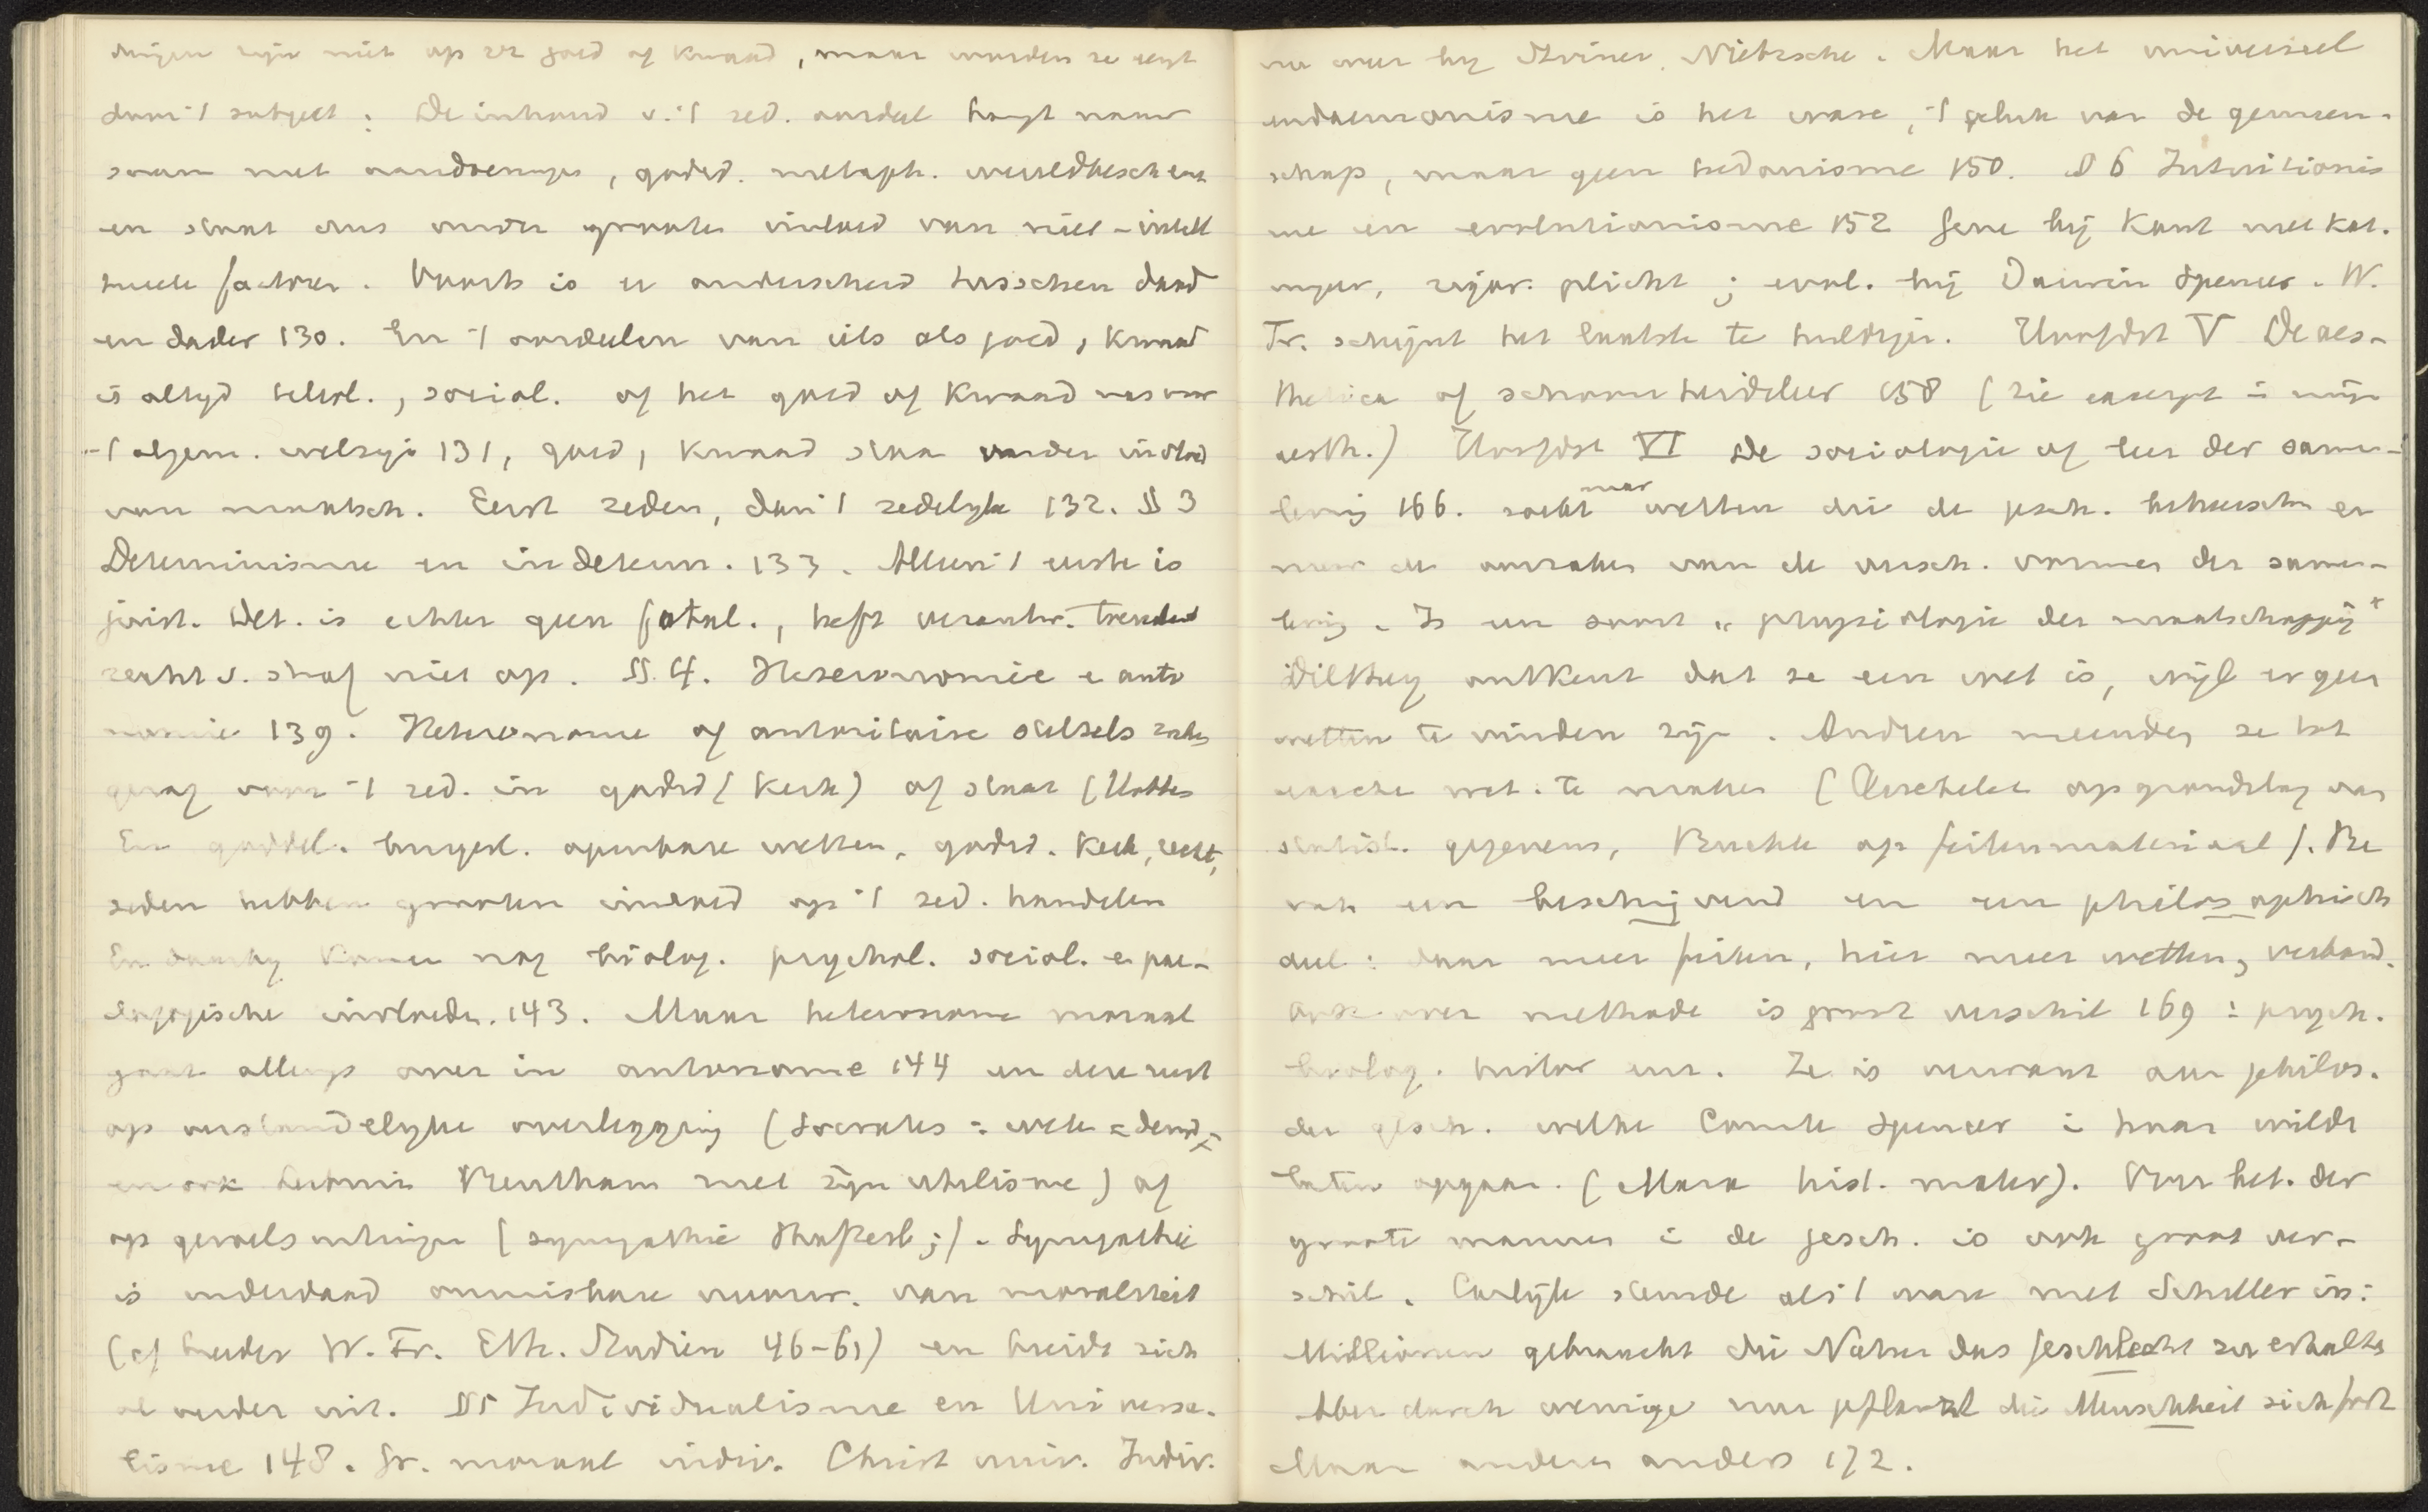 dingen zijn niet op zz goed of kwaad, maar worden ze eerst
door 't subject: De inhoud v. 't zed. oordeel hangt nauw
saam met aandoeningen, godsd. metaph. wereldbesch en
en staat dus onder grooten invloed van niet-intell
tueele factoren. Voorts is er onderscheid tusschen daad
en dader 130. En 't oordeelen van iets als goed, kwaad
is altyd teleol., sociaal. of het goed of kwaad was voor
't algem. welzijn 131, goed, kwaad staan onder invloed
van maatsch. Eerst zeden, dan 't zedelyke 132. § 3
Determinisme en indeterm. 133. Alleen 't eerste is
juist. Det. is echter geen fatal., heft verantw. toerekend
recht v. straf niet op. § 4. Heteronomie e auto
nomie 139. Heteronome of autoritaire stelsels zoeken
gezag voor 't zed. in godsd (Kerk) of staat (Hobbes
En goddel. burgerl. openbare wetten, godsd. Kerk, recht,
zeden hebben grooten invloed op 't zed. handelen
En daarby komen nog biolog. psychol. social. e pae-
dagogische invloeden. 143. Maar heteronome moraal
gaat allengs over in autonome 144 en deze rust
op verstandelyke overlegging (Socrates: weten = deugd;
en ook Bentham met zijn utilisme) of
op gevoelsneigingen (sympathie Shaftesb;). Sympathie
is inderdaad onmisbare voorw. van moraliteit
(cf breeder W. Fr. Eth. Studien 46-61) en breidt zich
al verder uit. § 5 Individualisme en Universa-
lisme 148. Gr. moraal indiv. Christ univ. Indiv.
nu weer by Stirner, Nietzsche. Maar het universeel
eudaemonisme is het ware, 't geluk van de gemeen-
schap, maar geen hedonisme 150. § 6 Intuitionis
me en evolutionisme 152 Gene bij Kant met kat.
imper, rigor. plicht; evol. bij Darwin Spencer. W.
Fr. schijnt het laatste te huldigen. Hoofdst V De aes-
thetica of schoonheidsleer 158 (zie excerpt in mijn
aesth.) Hoofdst VI De sociologie of leer der samen-
leving 166. zoekt naar wetten die de gesch. beheerschen en
naar de oorzaken van de versch. vormen der samen-
leving. Is een soort "physiologie der maatschappij"
Dilthey ontkent dat ze een wet is, wijl er geen
wetten te vinden zijn. Andren meenden ze tot
exacte wet. te maken (Quetelet op grondslag van
statist. gegevens, Buckle op feitenmateriaal). Be
vat een beschrijvend en een philosophisch
deel: daar meer feiten, hier meer wetten, verband.
Ook over methode is groot verschil 169: psych.
biolog. histor enz. Ze is verwant aan philos.
der gesch. welke Comte Spencer in haar wilde
laten opgaan. (Marx hist. mater). Over bet. der
groote mannen in de gesch. is ook groot ver-
schil. Carlyle stemde als 't ware met Schiller in:
Millionen gebraucht die Natur das Geschlecht zu erhalten
Aber durch wenige nur pflanzt die Menschheit sich fort
Maar anderen anders 172.